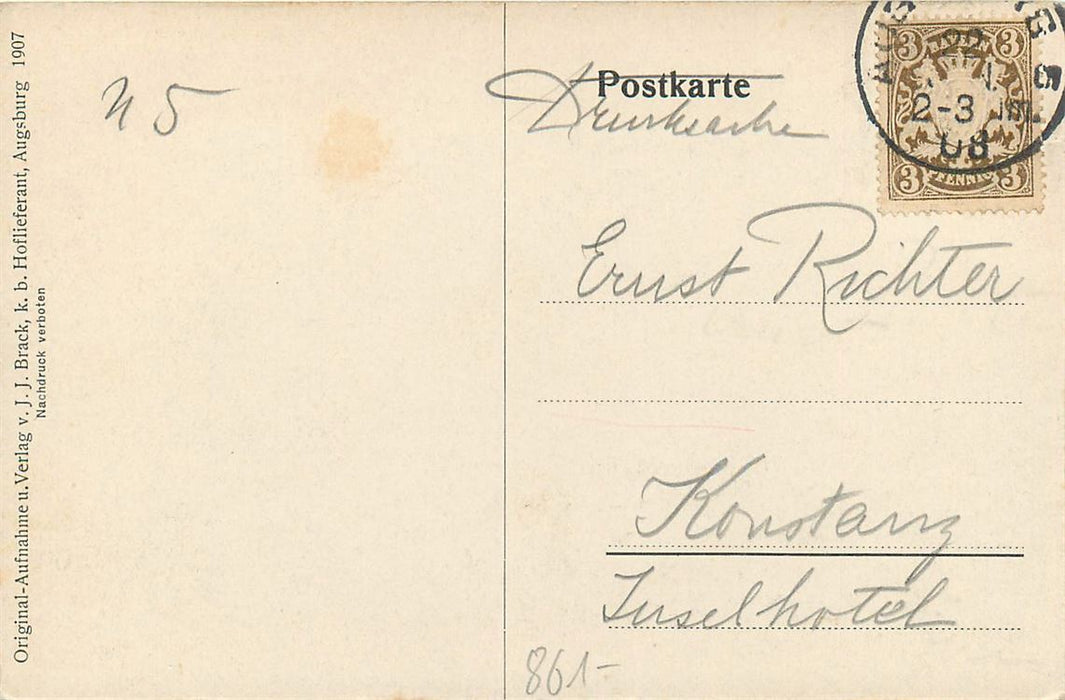 Original-Aufnahme u. Verlag v. J. J. Brack, k. b. Hoflieferant, Augsburg 1907
Nachdruck verboten
N 5
Postkarte
Drucksache
3 BAYERN 3
3 PFENNIG 3
22
2-3
08
Ernst Richter
Konstanz
Inselhotel
861-